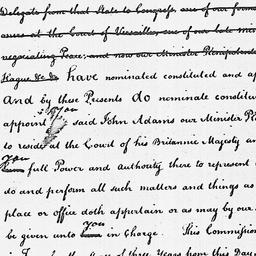 Delegate from that State to Congress, one of our former
at the Court of Versailles, one of our late Min
negociating Peace, and now our Minister Plenipotentia
Hague &c &c have nominated constituted and ap
And by these Presents do nominate constitut
you
appoint said John Adams our Minister Ple
to reside at the Court of his Britannic Majesty an
you
full Power and authority there to represent
do and perform all such matters and things as
place or office doth appertain or as may by our
you
be given unto in Charge. This Commission
of three Years from this Day